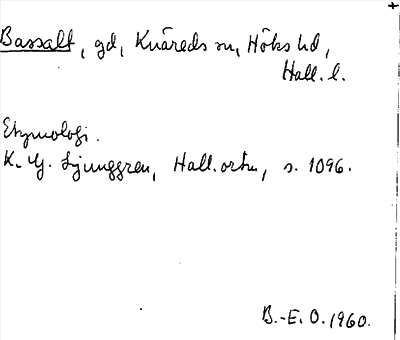 Bassalt, gd, Knäreds sn, Höks hd,
Hall. l.
Etymologi.
K. G. Ljunggren, Hall. ortn, s. 1096.
B.-E. O. 1960.